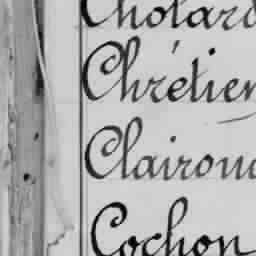 Chotard
Chrétien
Clairou
Cochon